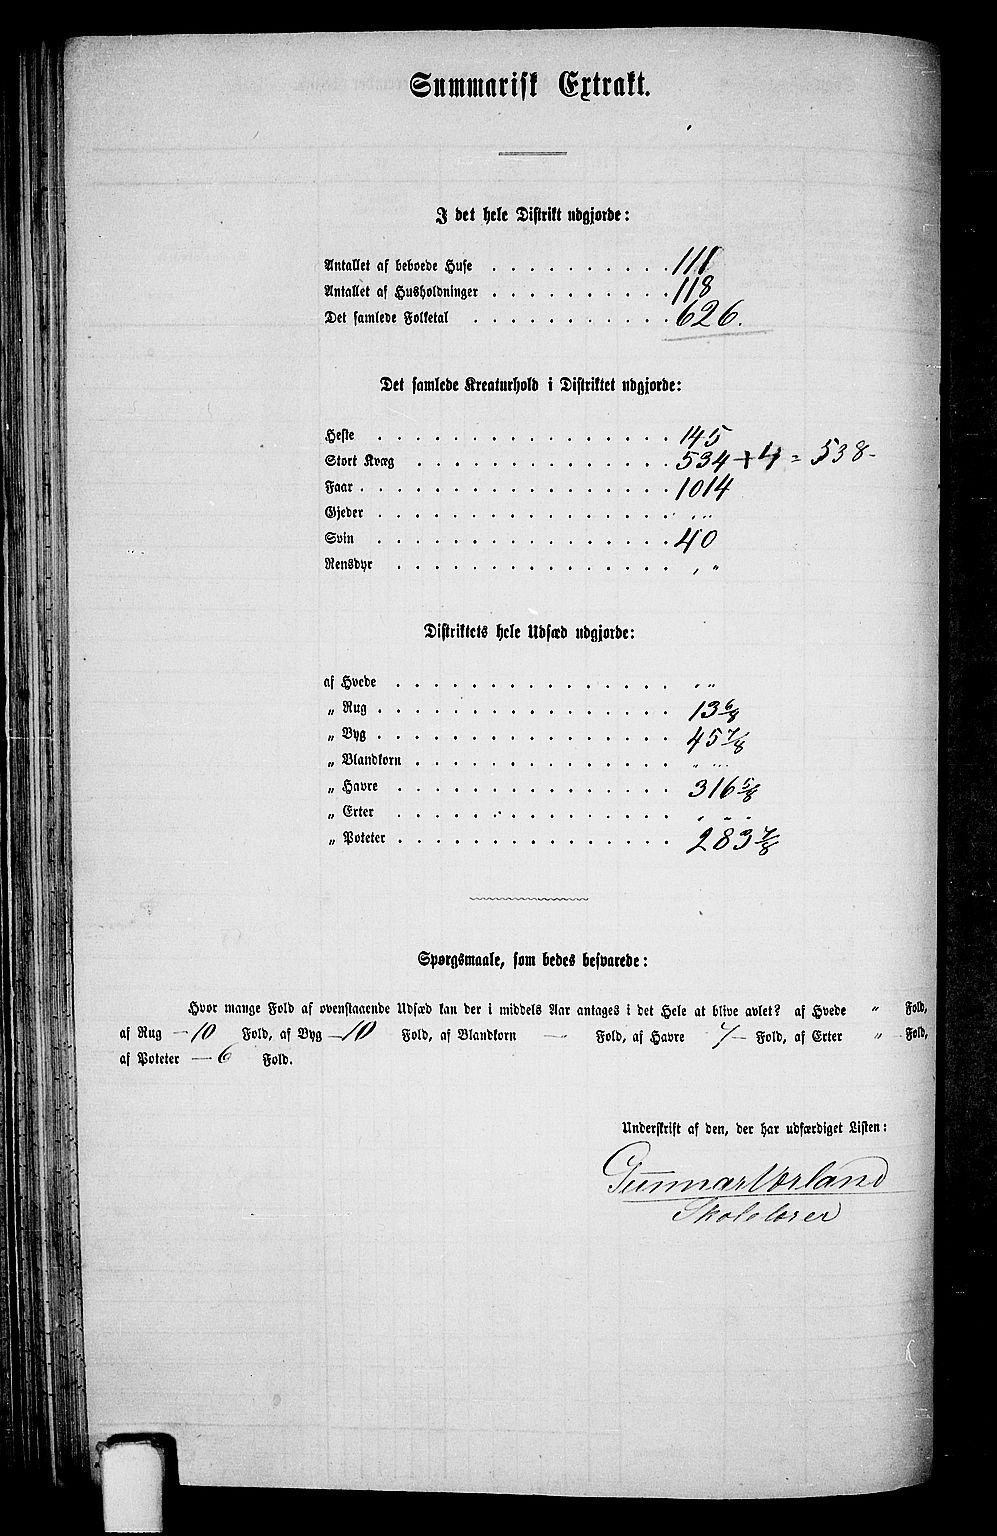 Summarisk Extrakt.
I det hele Distrikt udgjorde:
Antallet af beboede Huse . . . . . . . . . . 111
Antallet af Husholdninger . . . . . . . . . . 118
Det samlede Folketal . . . . . . . . . . . 626.
Det samlede Kreaturhold i Distriktet udgjorde:
Heste . . . . . . . . . . . . . . . . 145
Stort Kvæg . . . . . . . . . . . . . . 534 + 4 = 538-
Faar . . . . . . . . . . . . . . . . . 1014
Gjeder . . . . . . . . . . . . . . . . „
Svin . . . . . . . . . . . . . . . . 40
Rensdyr . . . . . . . . . . . . . . . „
Distriktets hele Udsæd udgjorde:
af Hvede . . . . . . . . . . . . . . . „
„ Rug . . . . . . . . . . . . . . . . 13 6/8
„ Byg . . . . . . . . . . . . . . . . 45 7/8
„ Blandkorn . . . . . . . . . . . . . . „
„ Havre . . . . . . . . . . . . . . . 316 5/8
„ Erter . . . . . . . . . . . . . . . „
„ Poteter . . . . . . . . . . . . . . . 283 7/8
Spørgsmaale, som bedes besvarede:
Hvor mange Fold af ovenstaaende Udsæd kan der i middels Aar antages i det Hele at blive avlet? af Hvede „ Fold,
af Rug — 10 Fold, af Byg — 10 Fold, af Blandkorn — Fold, af Havre 7 — Fold, af Erter „ — Fold,
af Poteter — 6 Fold.
Underskrift af den, der har udfærdiget Listen:
Gunnar Værland
Skolelærer